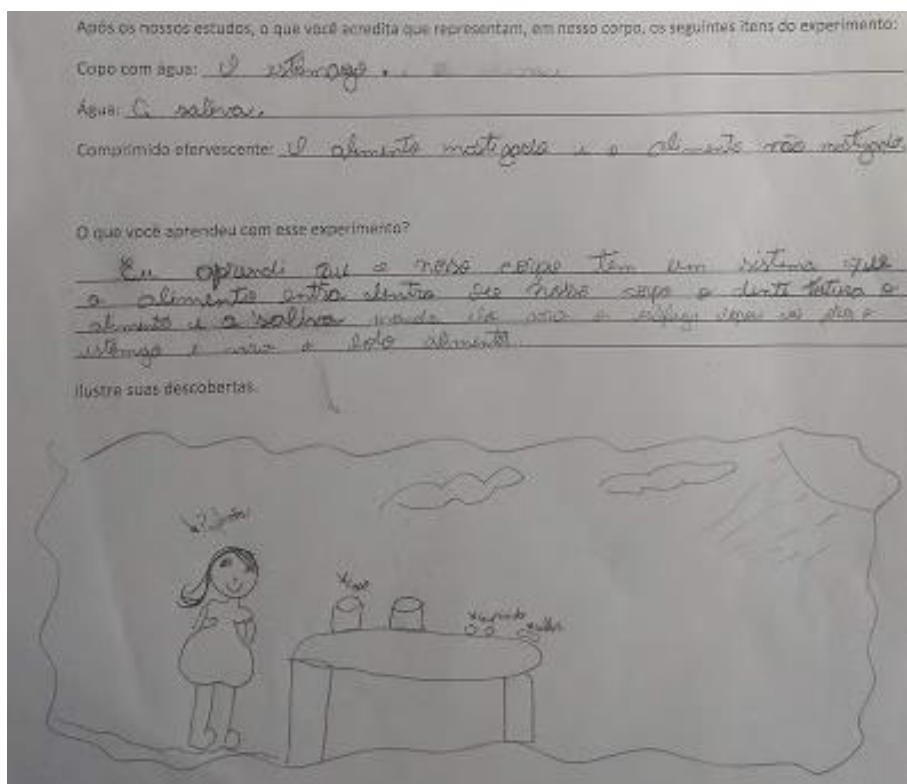 Após os nossos estudos, o que você acredita que representam, em nosso corpo, os seguintes itens do experimento:
Copo com água: O estômago.
Água: A saliva.
Comprimido efervescente: O alimento mastigado e o alimento não mastigado
O que você aprendeu com esse experimento?
Eu aprendi que o noso corpo tem um sistema que
o alimento entra dentro do noso corpo o dente tritura o
alimento e a saliva manda
estômago e o alimento.
Ilustre suas descobertas.